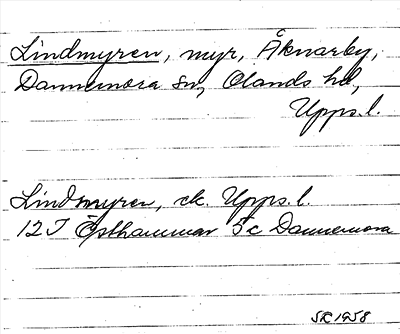 Lindmyren, myr, Åknarby,
Dannemora sn, Olands hd,
Upps.l.
Lindmyren, ek. Upps.l.
12I Östhammar 5c Dannemora
SR 1958